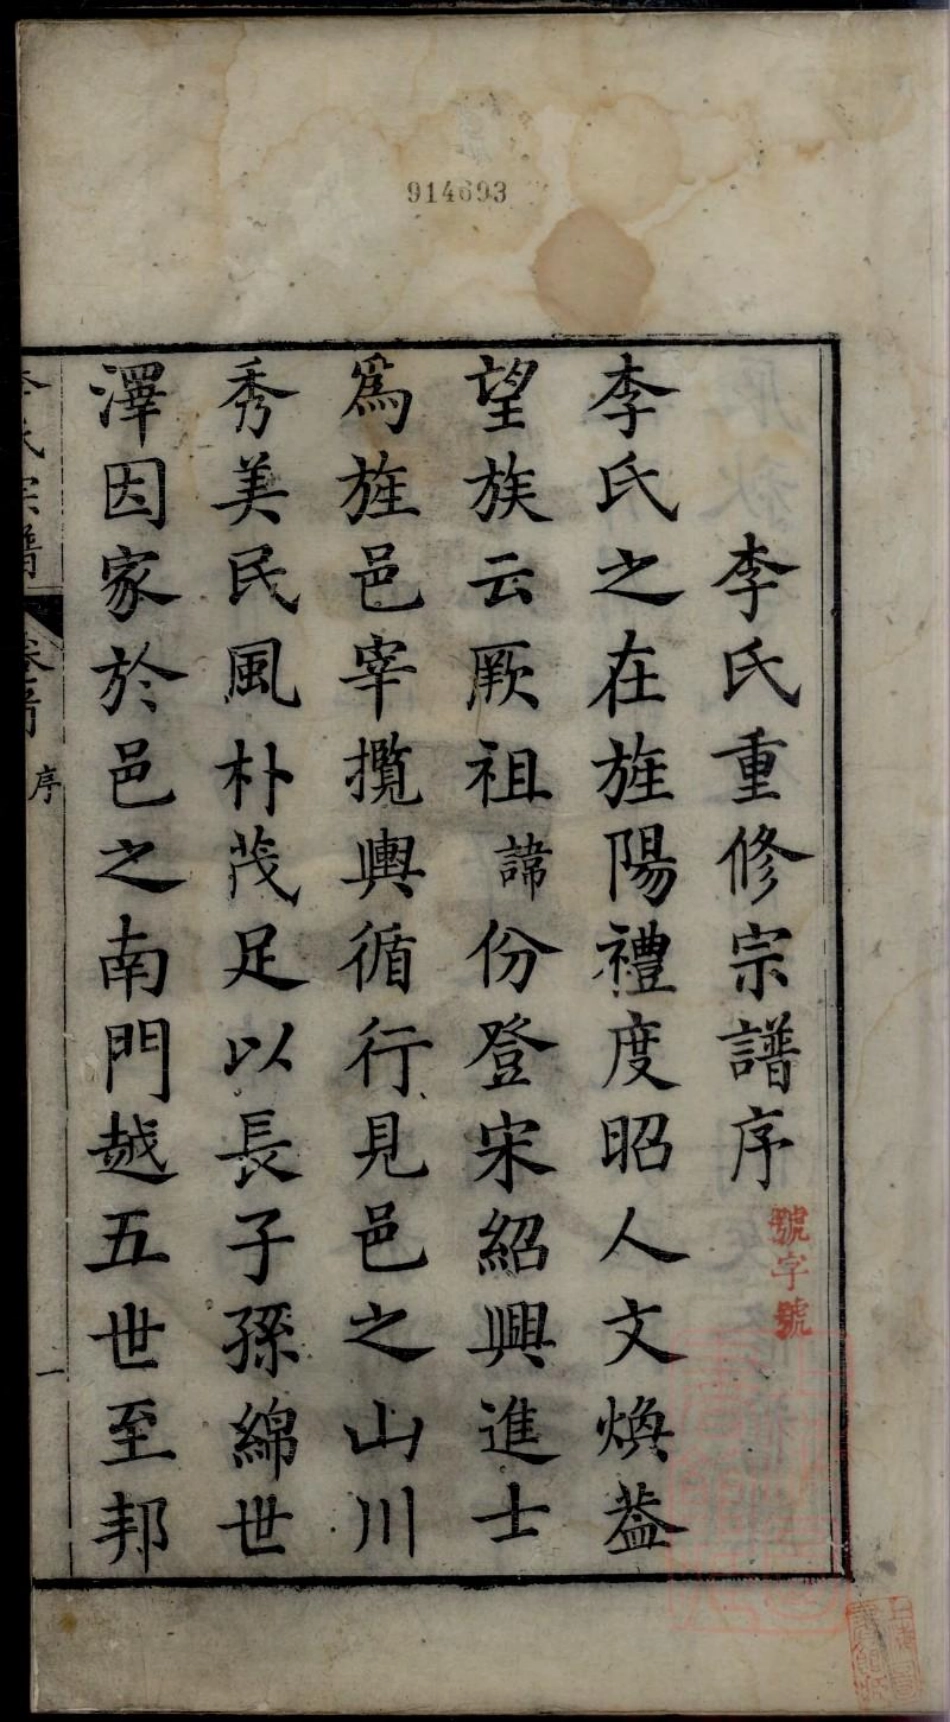 914693
李氏重修宗譜序
號字號
李氏之在旌陽禮度昭人文煥葢
望族云厥祖諱份登宋紹興進士
爲旌邑宰攬輿循行見邑之山川
秀美民風朴茂足以長子孫綿世
澤因家於邑之南門越五世至邦
李氏宗譜 序 一